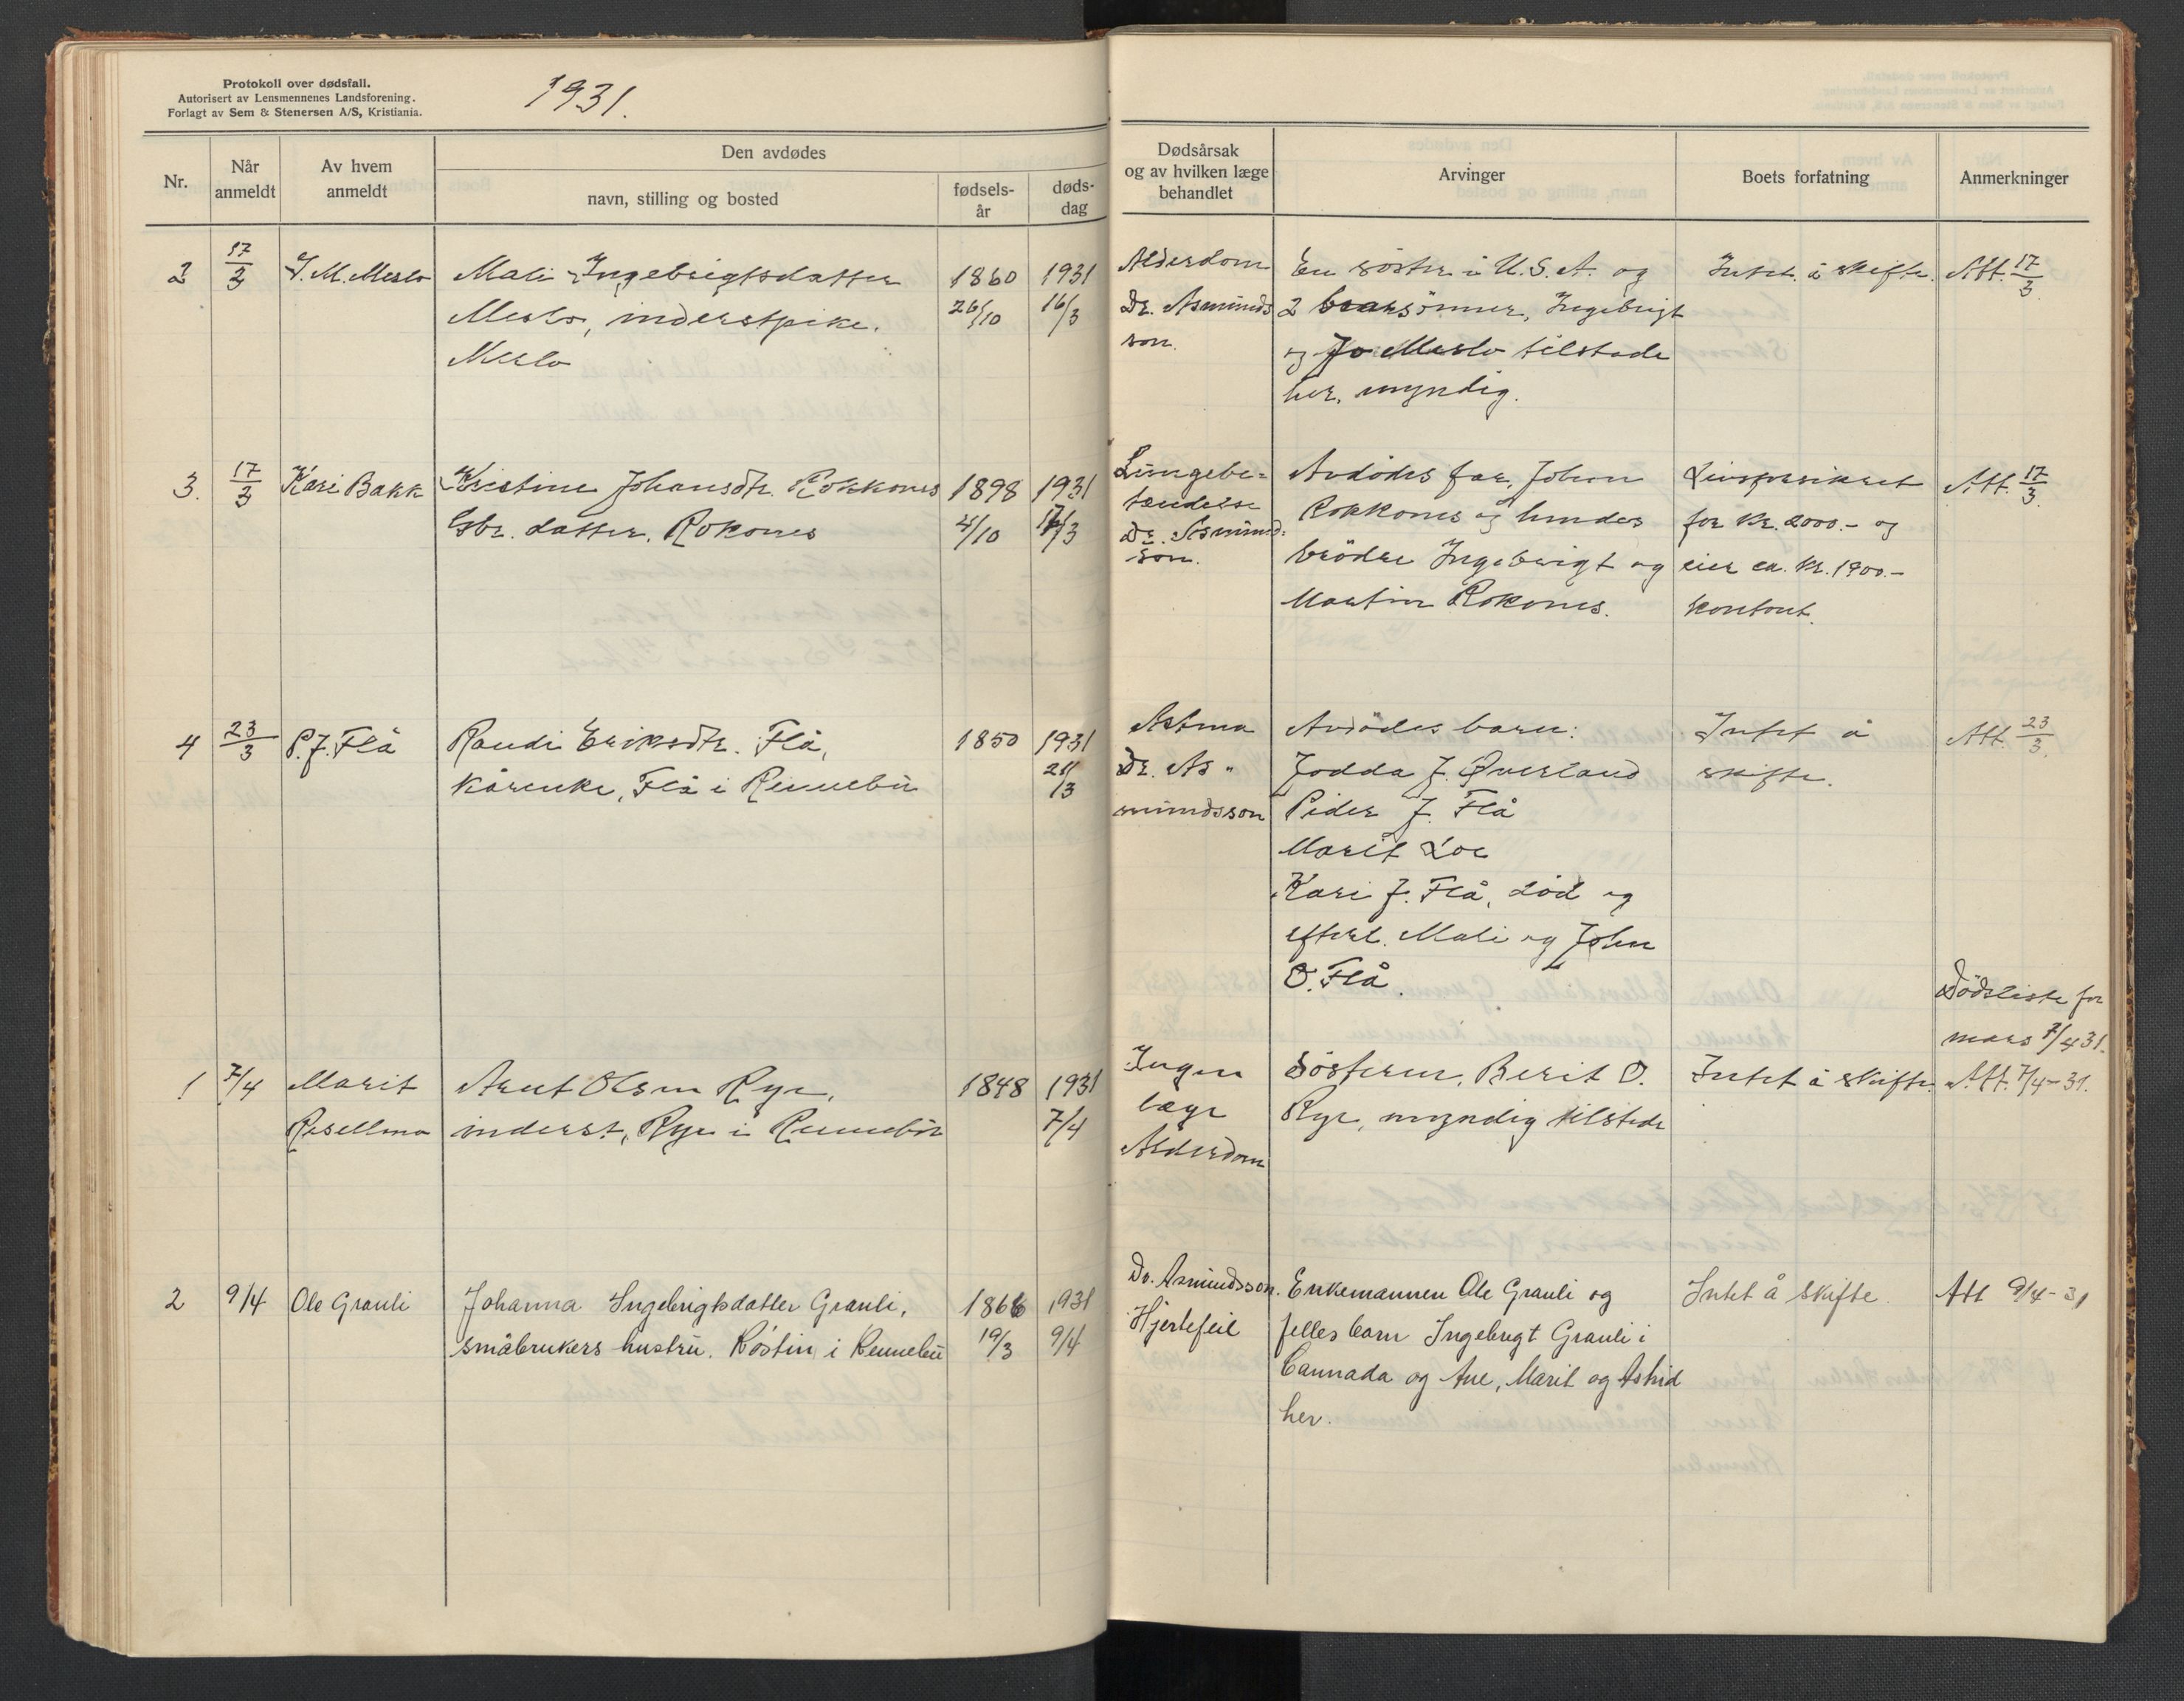 Protokoll over dødsfall.
Autorisert av Lensmennenes Landsforening.
Forlagt av Sem & Stenersen A/S, Kristiania.
1931.
Nr.
Når anmeldt
Av hvem anmeldt
Den avdødes
navn, stilling og bosted
fødsels-år
døds-dag
Dødsårsak og av hvilken læge behandlet
Arvinger
Boets forfatning
Anmerkninger
2
17/3
J. M. Meslo
Mali Ingebrigtsdatter
Meslo, inderstpike.
Meslo
1860
26/10
1931
16/3
Alderdom
Dr. Asmunds
son.
En söster i U.S.A. og
2 brorsönner, Ingebrigt
og Jo Meslo tilstede
her, myndig.
Intet å skifte.
Att. 17/3.
3.
17/3
Kari Bakk
Kristine Johansdtr. Rokkones
Gbr. datter. Rokones
1898
4/10
1931
/3
Lungebe-
tændelse
Dr. Asmund-
son.
Avdödes far, Johan
Rokkones og hendes
brödre Ingebrigt og
Martin Rokones.
Livsforsikret
for kr. 2000.- og
eier ca. kr. 1900.-
kontant.
Att. 17/3.
4
23/3
P. J. Flå
Randi Eriksdtr. Flå,
kårenke, Flå i Rennebu
1850
1931
21/3
Astma
Dr. As-
mundsson
Avdödes barn:
Jodda J. Øverland
Peder J. Flå
Marit Loe
Kari J. Flå, död og
efterl. Mali og John
O. Flå.
Intet å
skifte.
Att. 23/3.
Dödsliste for
mars 7/4 31.
1
7/4
Marit
Resellmo
Arnt Olsen Rye,
inderst, Rye i Rennebu
1848
1931
7/4
Ingen
læge
Alderdom
Sösteren, Berit O.
Rye, myndig tilstede
Intet å skifte.
Att. 7/4-31.
2
9/4
Ole Grauli
Johanna Ingebrigtsdatter Grauli,
småbrukers hustru. Röstin i Rennebu
1866
19/3
1931
9/4
Dr. Asmundsson.
Hjertefeil
Enkemannen Ole Grauli og
felles barn Ingebrigt Grauli i
Cannada og Ane, Marit og Astrid
her.
Intet å skifte.
Att 9/4-31